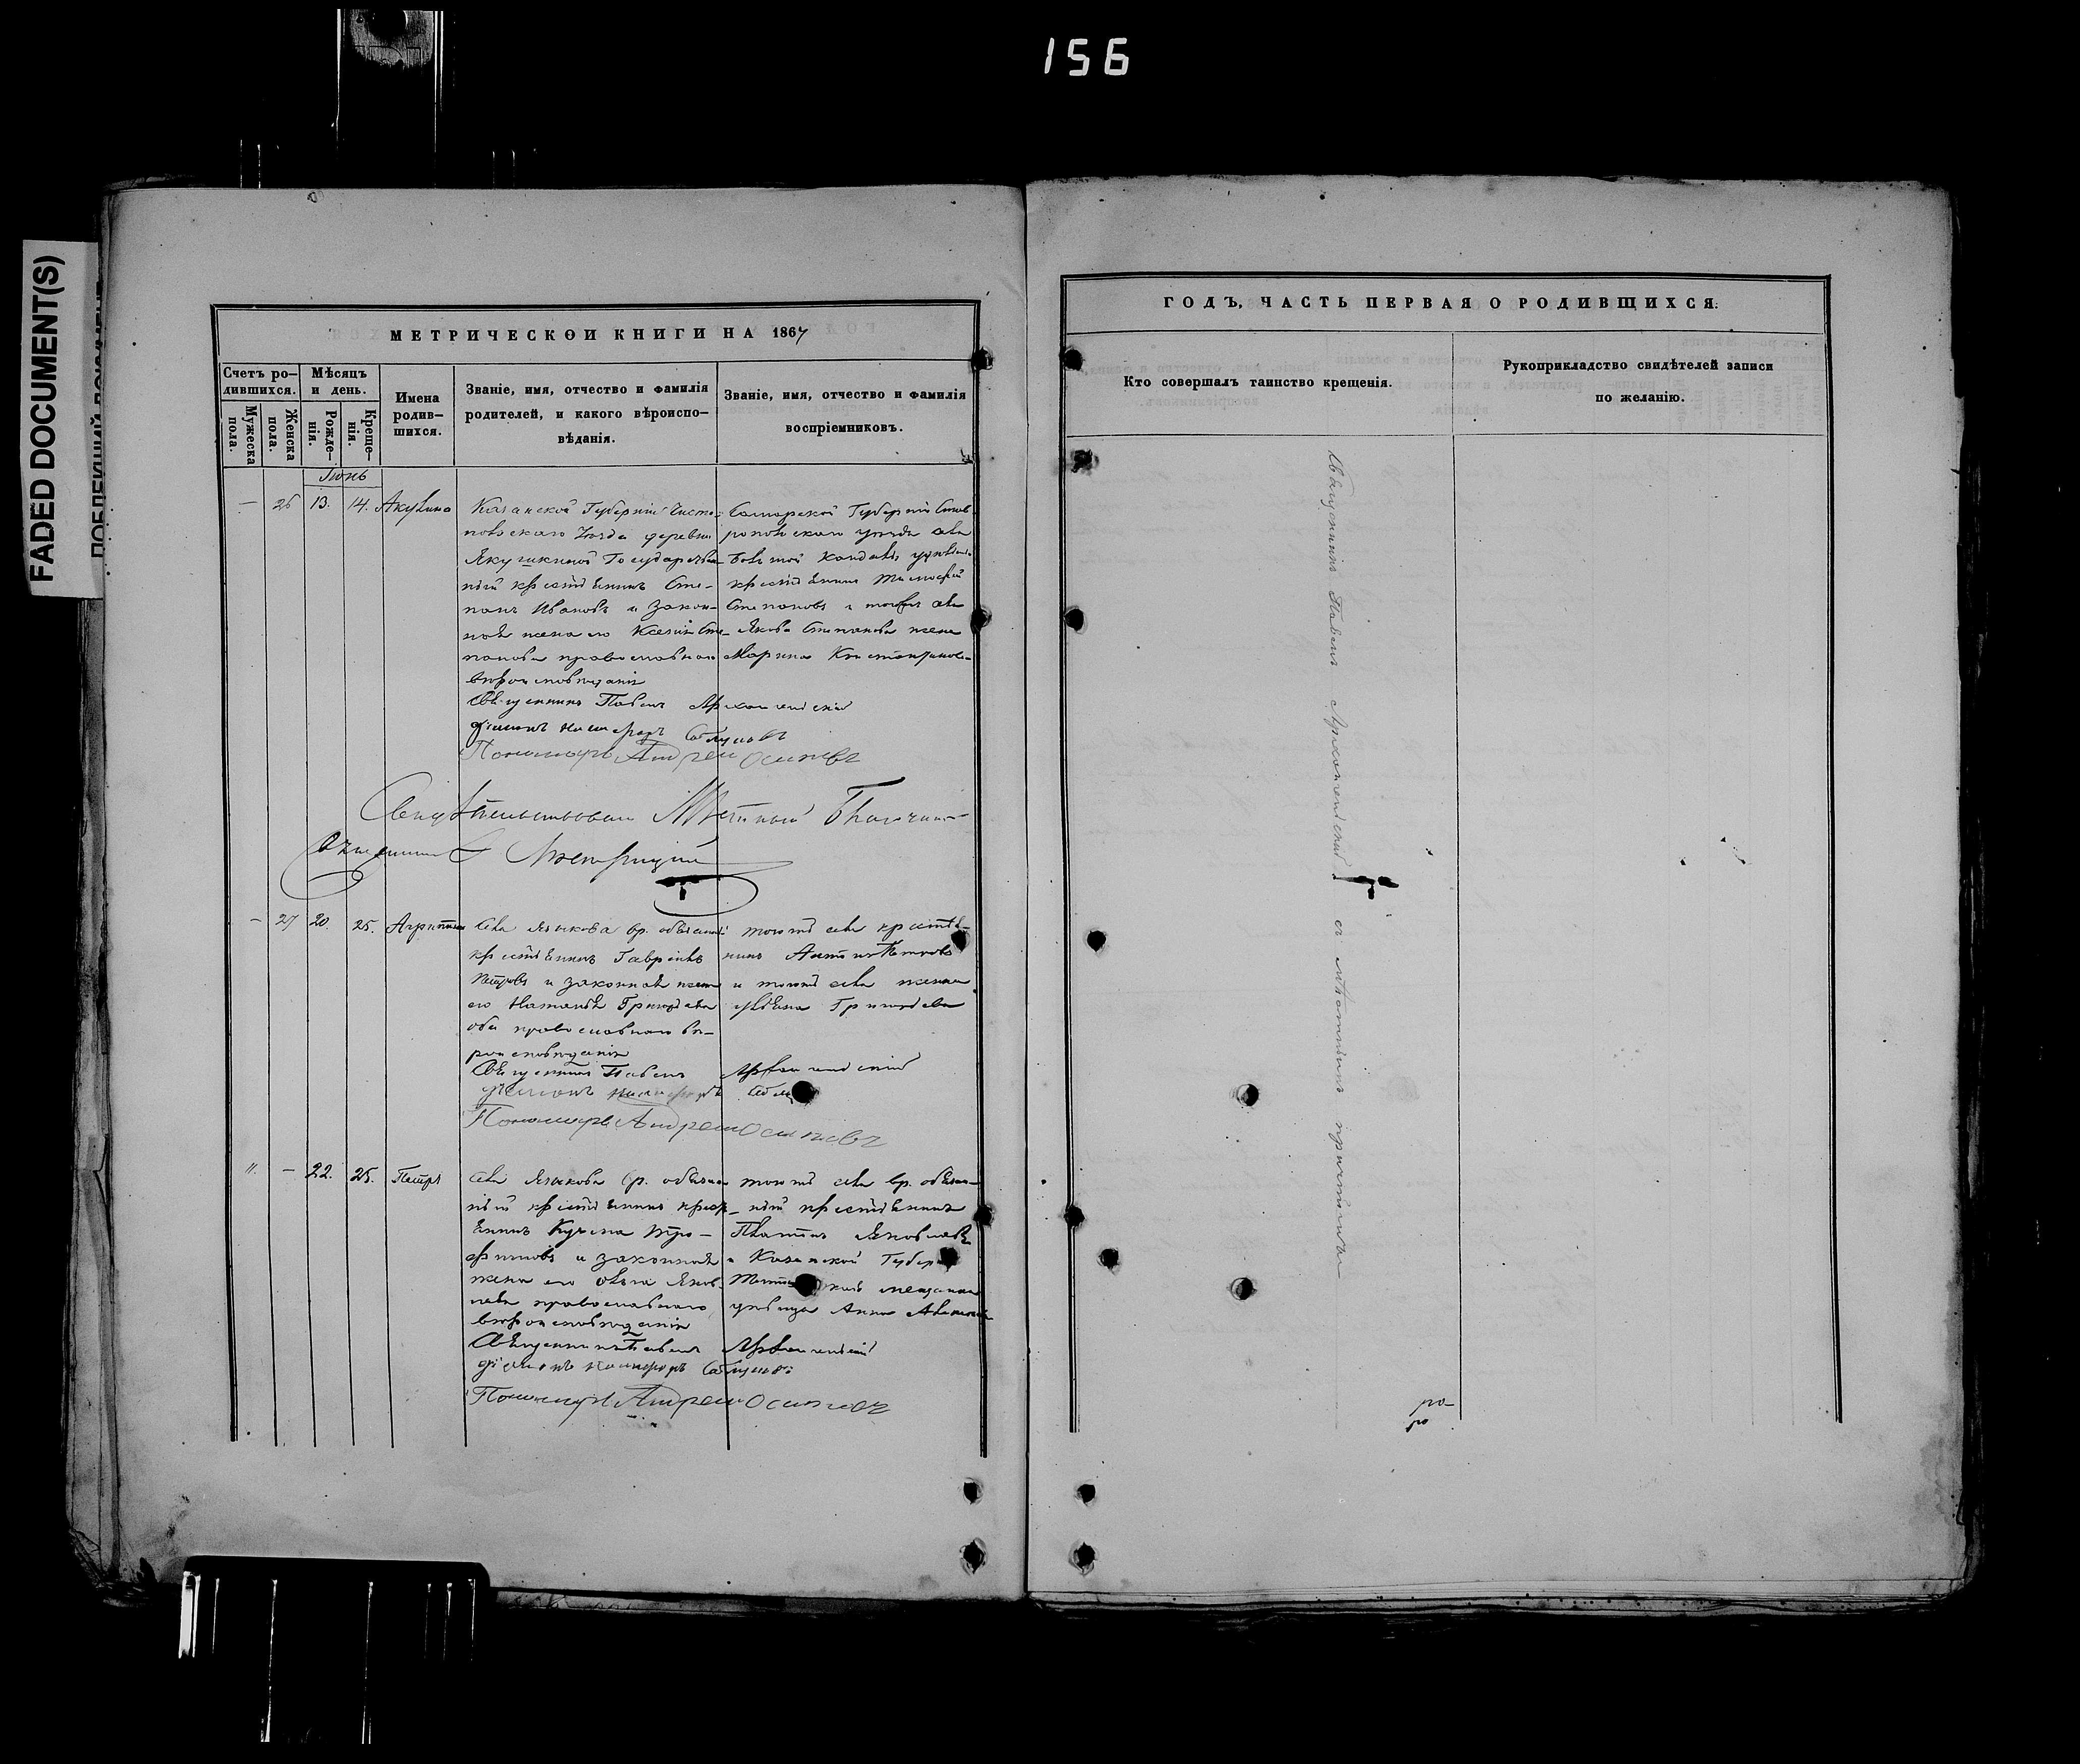 156
FADED DOCUMENT(S)
МЕТРИЧЕСКОЙ КНИГИ НА 1867
Счетъ ро-
дившихся.
Мужеска
пола.
Женска
пола.
Мѣсяцъ
и день.
Рожде-
нія.
Креще-
нія.
Имена
родив-
шихся.
Званіе, имя, отчество и фамилія
родителей, и какого вѣроиспо-
вѣданія.
Званіе, имя, отчество и фамилія
воспріемниковъ.
Іюнь
— 26 13. 14. Акулина
Казанской Губерніи Чисто-
польскаго Уѣзда деревни
Якушкиной Государствен-
ный крестьянинъ Сте-
панъ Ивановъ и закон-
ная жена его Ксенія Сте-
панова православнаго
вѣроисповѣданія
Самарской Губерніи Став-
ропольскаго уѣзда села
крестьянинъ Тимофей
Степановъ и тогоже села
Якова Степанова жена
Марина Константинова
Священникъ Павелъ Архангельскій
Діаконъ
Пономарь Андрей Осиповъ
Свидѣтельствовалъ Мѣстный Благочин-
Священникъ
— 27 20. 25. Агрипина
Села Языкова вр. обязанный
крестьянинъ Гаврилъ
Петровъ и законная жена
его Наталья Григорьева
оба православнаго вѣ-
роисповѣданія
тогоже села крестья-
нинъ Антонъ Петровъ
и тогоже села жена
Ульяна Григорьева
Священникъ Павелъ Архангельскій
Діаконъ
Пономарь Андрей Осиповъ
" — 22. 25. Петръ
Села Языкова вр. обязан
ный крестьянинъ
Кузьма Тро-
фимовъ и законная
жена его Ольга Яков-
лева православнаго
вѣроисповѣданія
тогоже села вр. обязан-
ный крестьянинъ
Платонъ Яковлевъ
и Казанской Губерніи
Анна
Священникъ Павелъ Архангельскій
Діаконъ
Пономарь Андрей Осиповъ
ГОДЪ, ЧАСТЬ ПЕРВАЯ О РОДИВШИХСЯ.
Кто совершалъ таинство крещенія.
Рукоприкладство свидѣтелей записи
по желанію.
Священникъ Павелъ Архангельскій съ мѣстнымъ причтомъ
ро-
ро